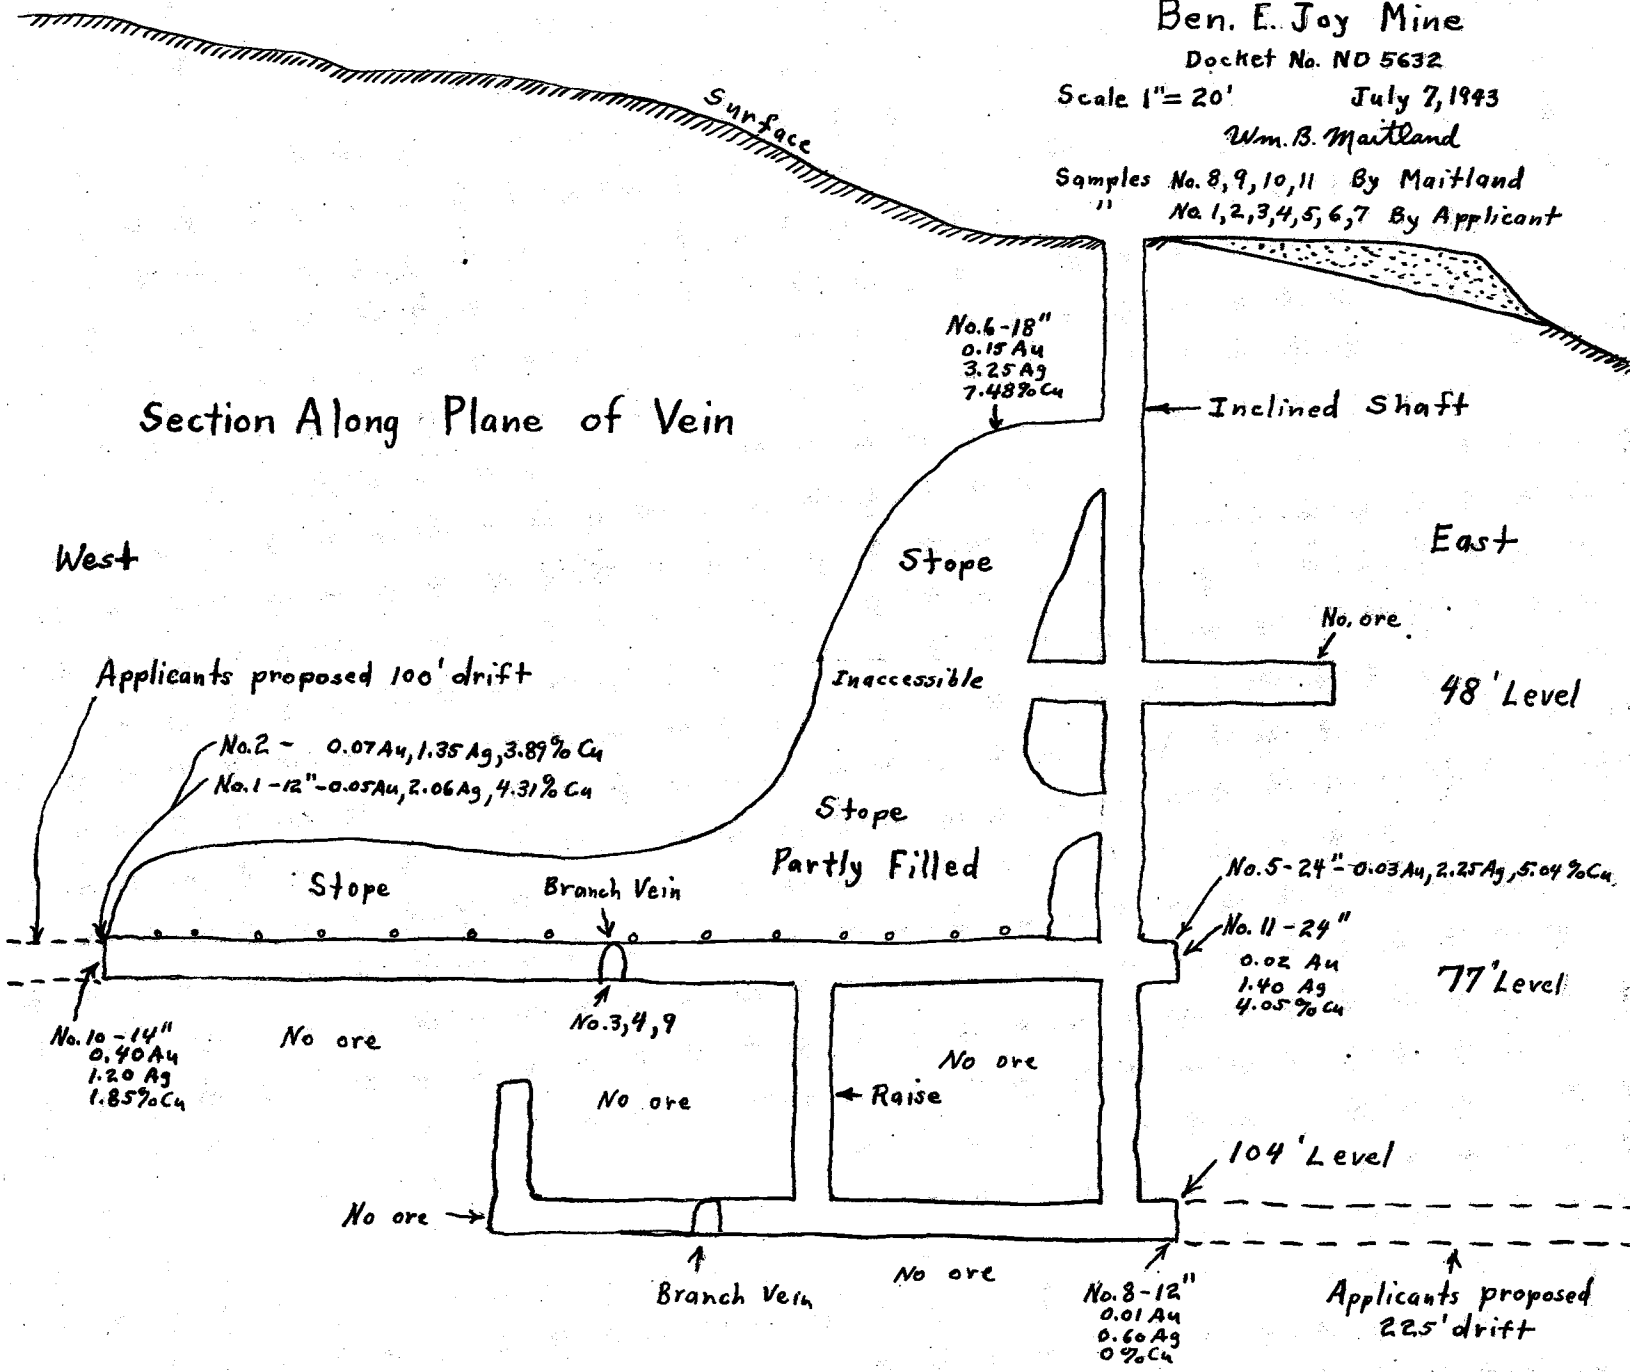 Ben. E. Joy Mine
Docket No. ND 5632
Scale 1"= 20' July 7, 1943
Wm. B. Maitland
Samples No. 8, 9, 10, 11 By Maitland
" No. 1, 2, 3, 4, 5, 6, 7 By Applicant
Surface
No. 6 - 18"
0.15 Au
3.25 Ag
7.48% Cu
Inclined Shaft
Section Along Plane of Vein
West
Stope
East
No. ore
Applicants proposed 100' drift
Inaccessible
48' Level
No. 2 - 0.07 Au, 1.35 Ag, 3.89% Cu
No. 1 - 12" - 0.05 Au, 2.06 Ag, 4.31% Cu
Stope
Partly Filled
Stope
Branch Vein
No. 5 - 24" - 0.03 Au, 2.25 Ag, 5.04% Cu
No. 11 - 24"
0.02 Au
1.40 Ag
4.05% Cu
77' Level
No. 10 - 14"
0.40 Au
1.20 Ag
1.85% Cu
No ore
No. 3, 4, 9
No ore
No ore
Raise
104' Level
No ore
Branch Vein
No ore
No. 8 - 12"
0.01 Au
0.60 Ag
0% Cu
Applicants proposed
225' drift